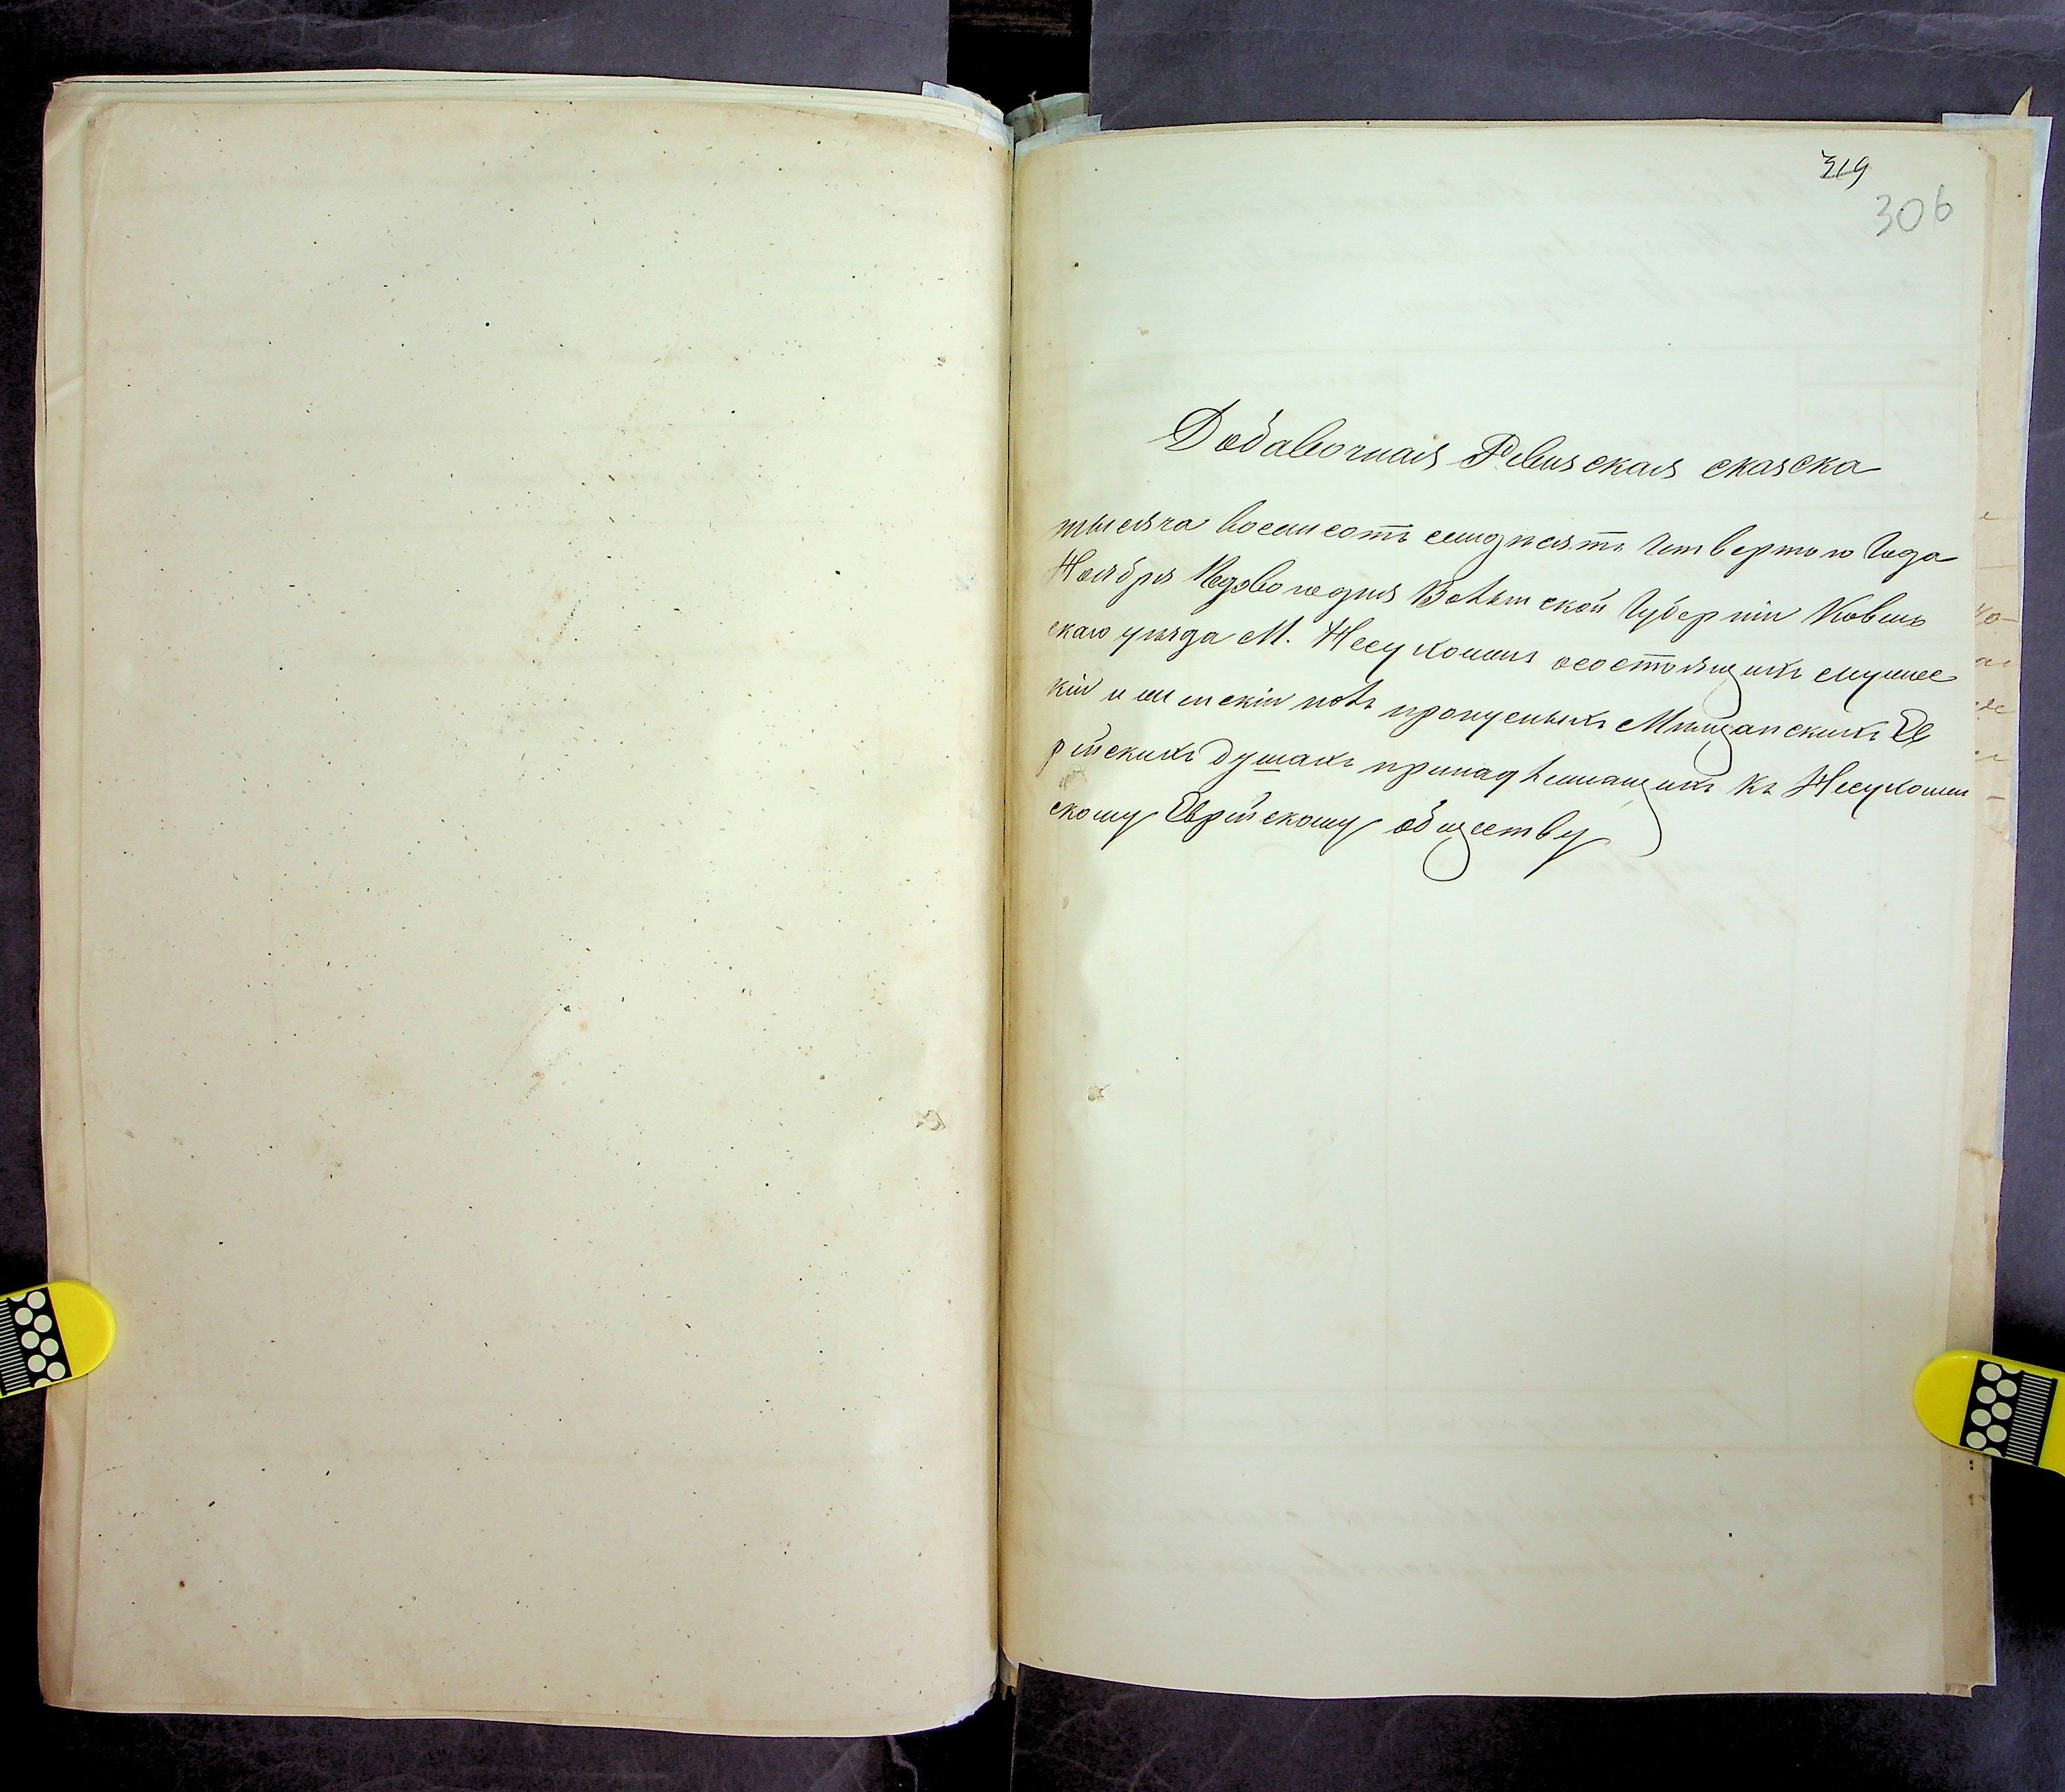 319
306
Добавочная Ревизская сказка
тысяча восемсотъ семдесятъ Четвертого Года
Ноября Волынской Губерніи Ковель
скаго уѣзда М. Несухоижи осостоящихъ мужес
кій и женскій полъ пропусныхъ Мѣщанскихъ Ев
рейскихъ Душахъ принадлежащихъ Къ Несухоиж
скому Еврейскому обществу